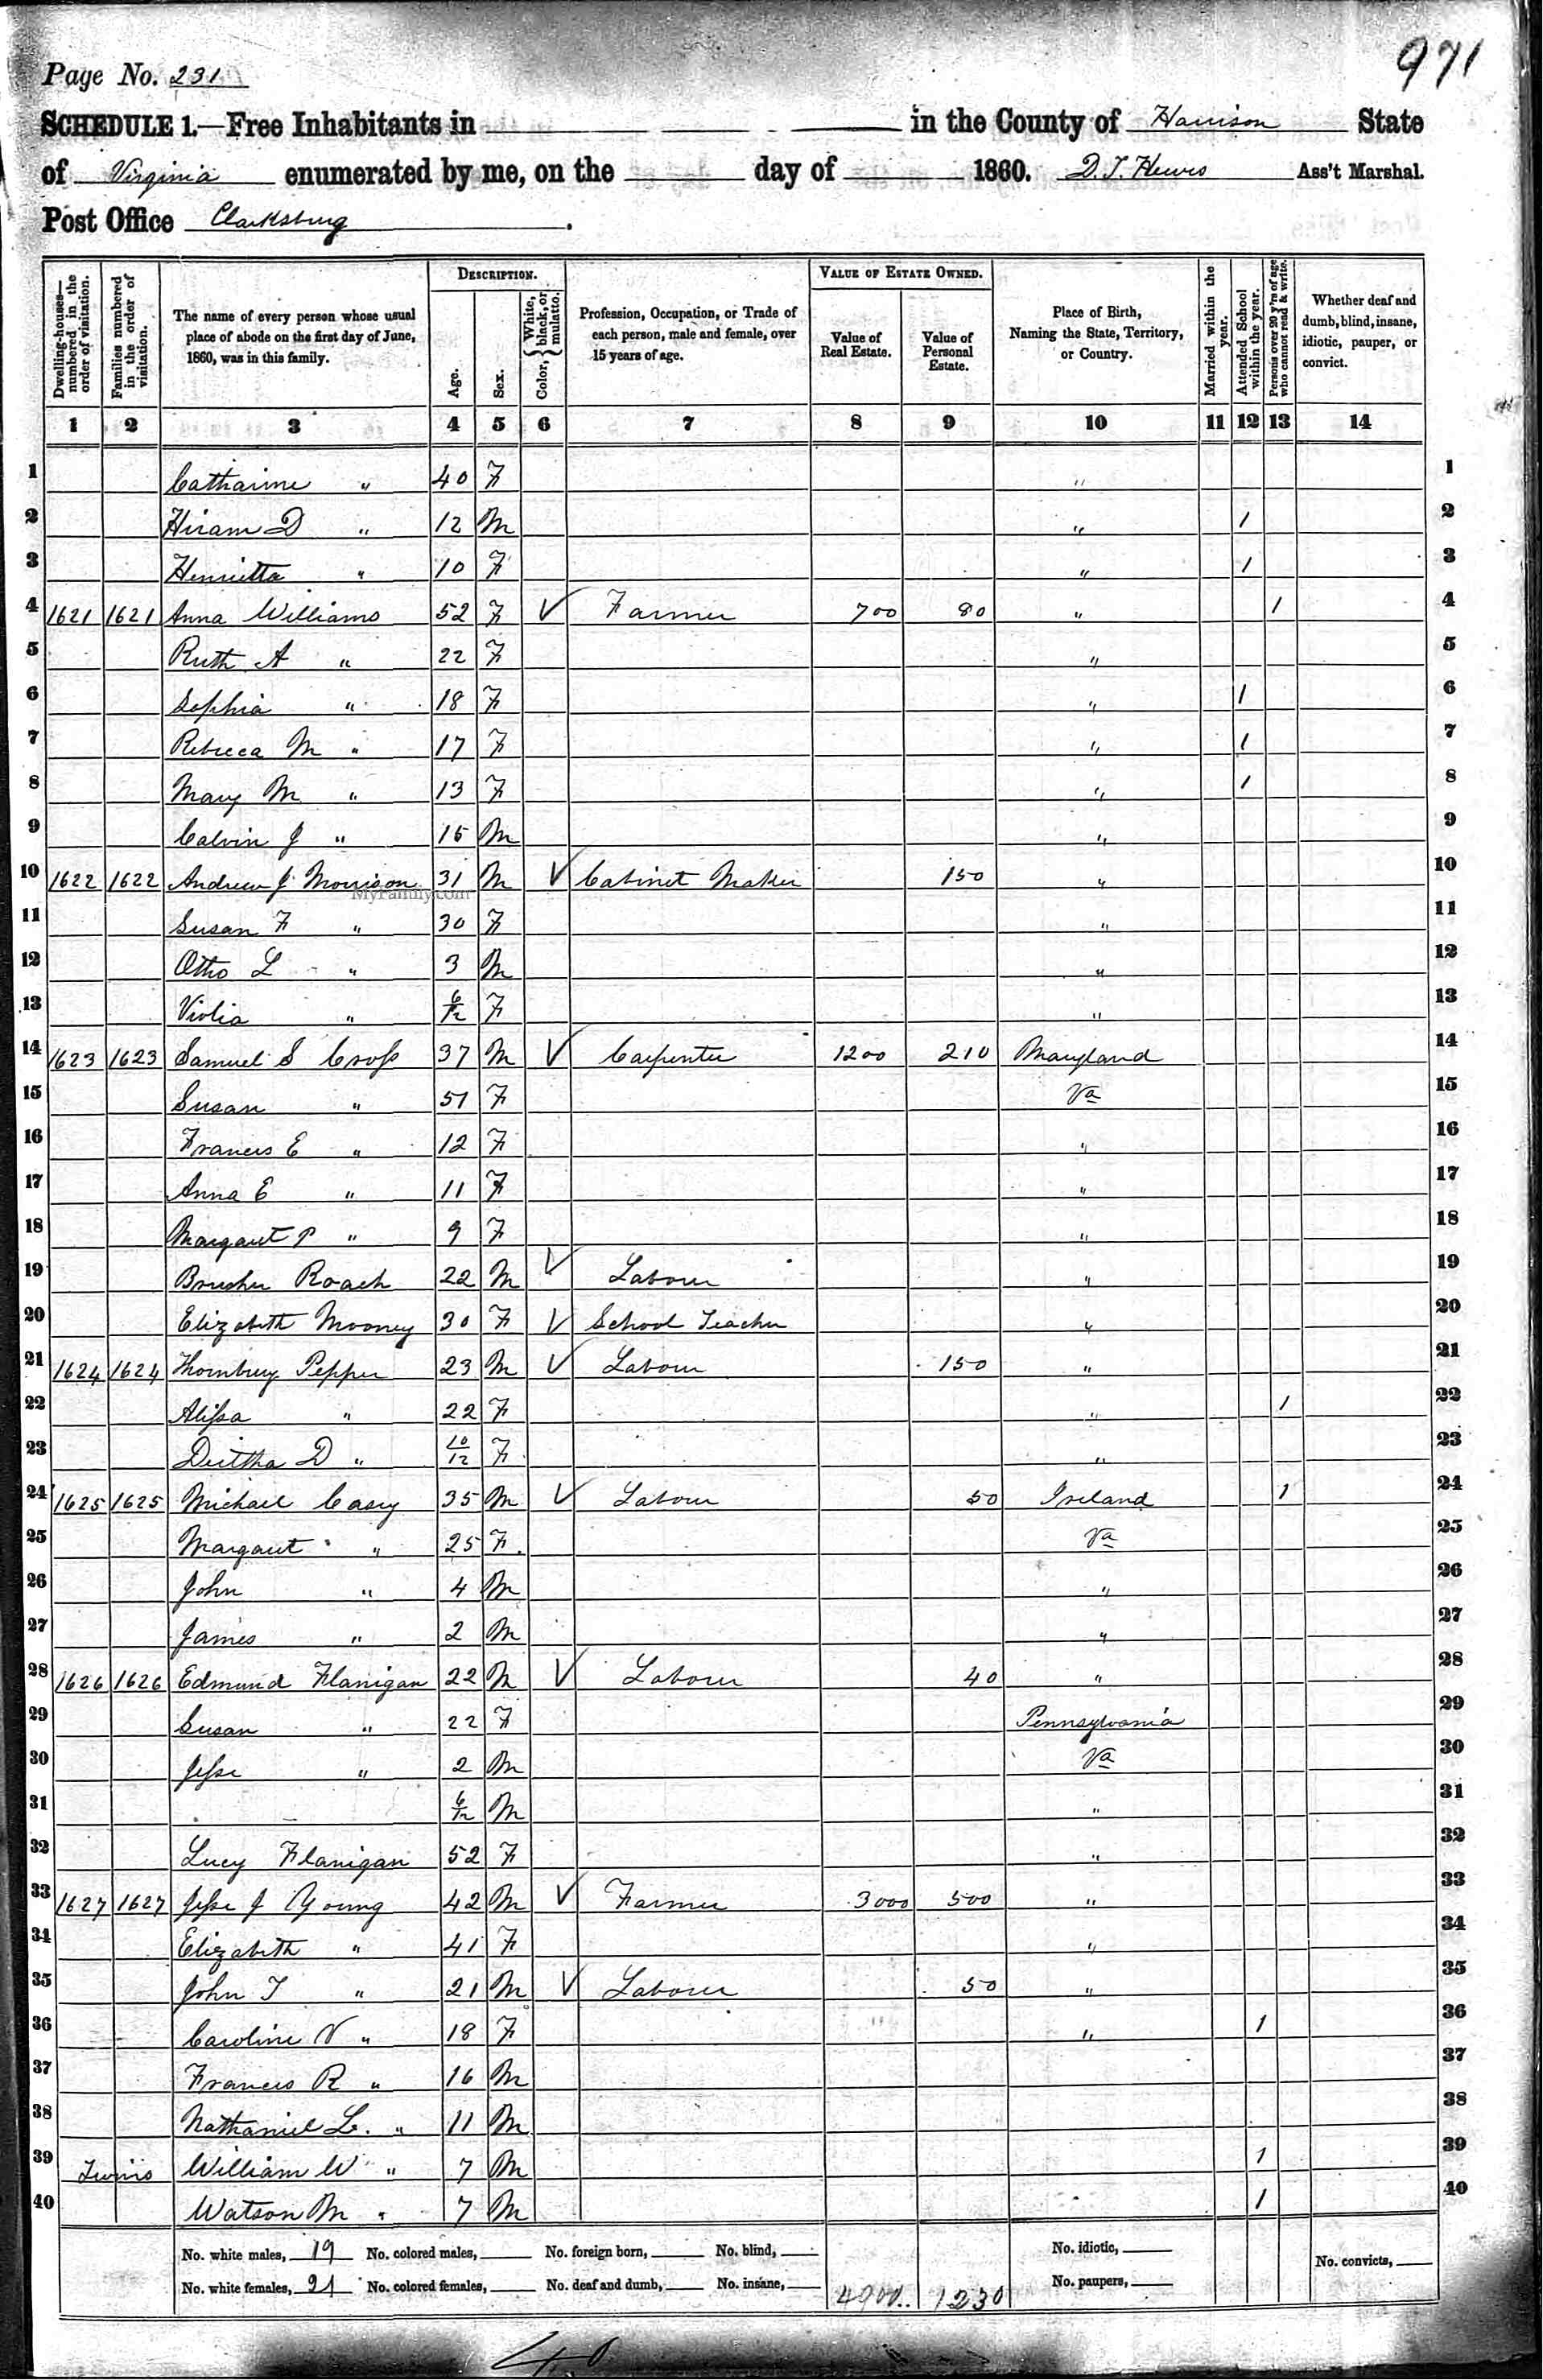 971
Page No. 231
SCHEDULE 1.—Free Inhabitants in in the County of Harrison State
of Virginia enumerated by me, on the day of 1860. D. T. Hewes Ass't Marshal.
Post Office Clarksburg .
Dwelling-houses—numbered in the order of visitation. Families numbered in the order of visitation. The name of every person whose usual place of abode on the first day of June, 1860, was in this family. DESCRIPTION. Age. Sex. Color, White, black, or mulatto. Profession, Occupation, or Trade of each person, male and female, over 15 years of age. VALUE OF ESTATE OWNED. Value of Real Estate. Value of Personal Estate. Place of Birth, Naming the State, Territory, or Country. Married within the year. Attended School within the year. Persons over 20 y'rs of age who cannot read & write. Whether deaf and dumb, blind, insane, idiotic, pauper, or convict.
1 2 3 4 5 6 7 8 9 10 11 12 13 14
1 Catharine " 40 F " 1
2 Hiram D " 12 M " / 2
3 Henrietta " 10 F " / 3
4 1621 1621 Anna Williams 52 F V Farmer 700 80 " / 4
5 Ruth A " 22 F " 5
6 Sophia " 18 F " / 6
7 Rebecca M " 17 F " / 7
8 Mary M " 13 F " / 8
9 Calvin J " 15 M " 9
10 1622 1622 Andrew J Morrison 31 M V Cabinet Maker 150 " 10
MyFamily.com
11 Susan F " 30 F " 11
12 Otho L " 3 M " 12
13 Violia " 6/12 F " 13
14 1623 1623 Samuel S Cross 37 M V Carpenter 1200 210 Maryland 14
15 Susan " 51 F Va 15
16 Frances E " 12 F " 16
17 Anna E " 11 F " 17
18 Margaret P " 9 F " 18
19 Roach 22 M V Laborer " 19
20 Elizabeth Mooney 30 F V School Teacher " 20
21 1624 1624 Thornbury Pepper 23 M V Laborer 150 " 21
22 Alissa " 22 F " / 22
23 D " 10/12 F " 23
24 1625 1625 Michael Casey 35 M V Laborer 50 Ireland 1 24
25 Margaret " 25 F Va 25
26 John " 4 M " 26
27 James " 2 M " 27
28 1626 1626 Edmund Flanigan 22 M V Laborer 40 " 28
29 Susan " 22 F Pennsylvania 29
30 Jesse " 2 M Va 30
31 6/12 M " 31
32 Lucy Flanigan 52 F " 32
33 1627 1627 Jesse J Young 42 M V Farmer 3000 500 " 33
34 Elizabeth " 41 F " 34
35 John T " 21 M V Laborer 50 " 35
36 Caroline V " 18 F " / 36
37 Francis R " 16 M 37
38 Nathaniel L. " 11 M 38
39 Twins William W " 7 M 1 39
40 Watson M " 7 M 1 40
No. white males, 19 No. colored males, No. foreign born, No. blind, No. idiotic, No. convicts,
No. white females, 21 No. colored females, No. deaf and dumb, No. insane, 4900 1230 No. paupers,
40